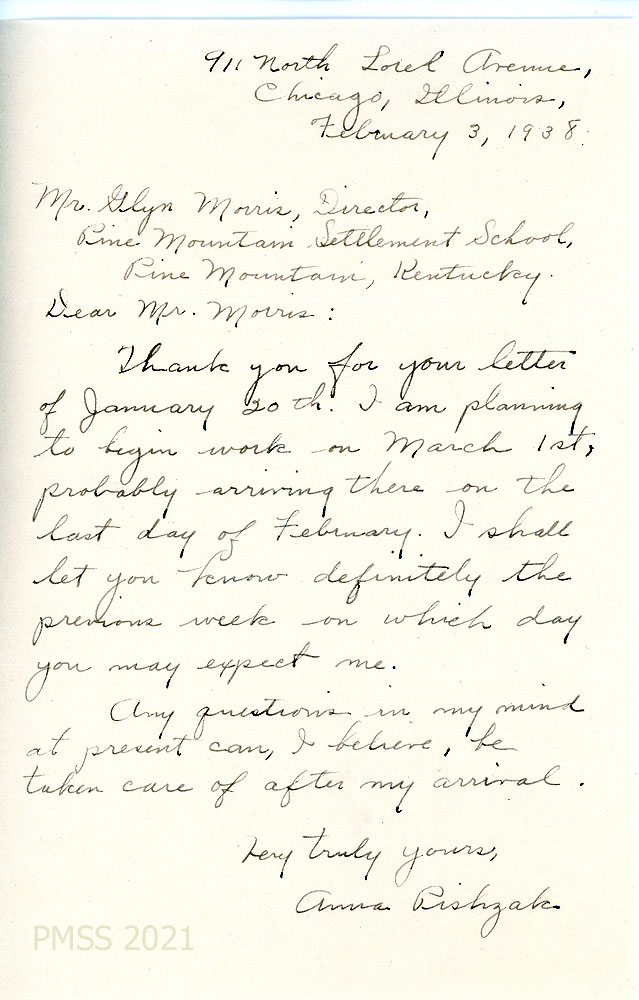 911 North Lorel Avenue,
Chicago, Illinois,
February 3, 1938.
Mr. Glyn Morris, Director,
Pine Mountain Settlement School,
Pine Mountain, Kentucky.
Dear Mr. Morris:
Thank you for your letter
of January 20th. I am planning
to begin work on March 1st,
probably arriving there on the
last day of February. I shall
let you know definitely the
previous week on which day
you may expect me.
Any questions in my mind
at present can, I believe, be
taken care of after my arrival.
Very truly yours,
Anna Pishzak
PMSS 2021